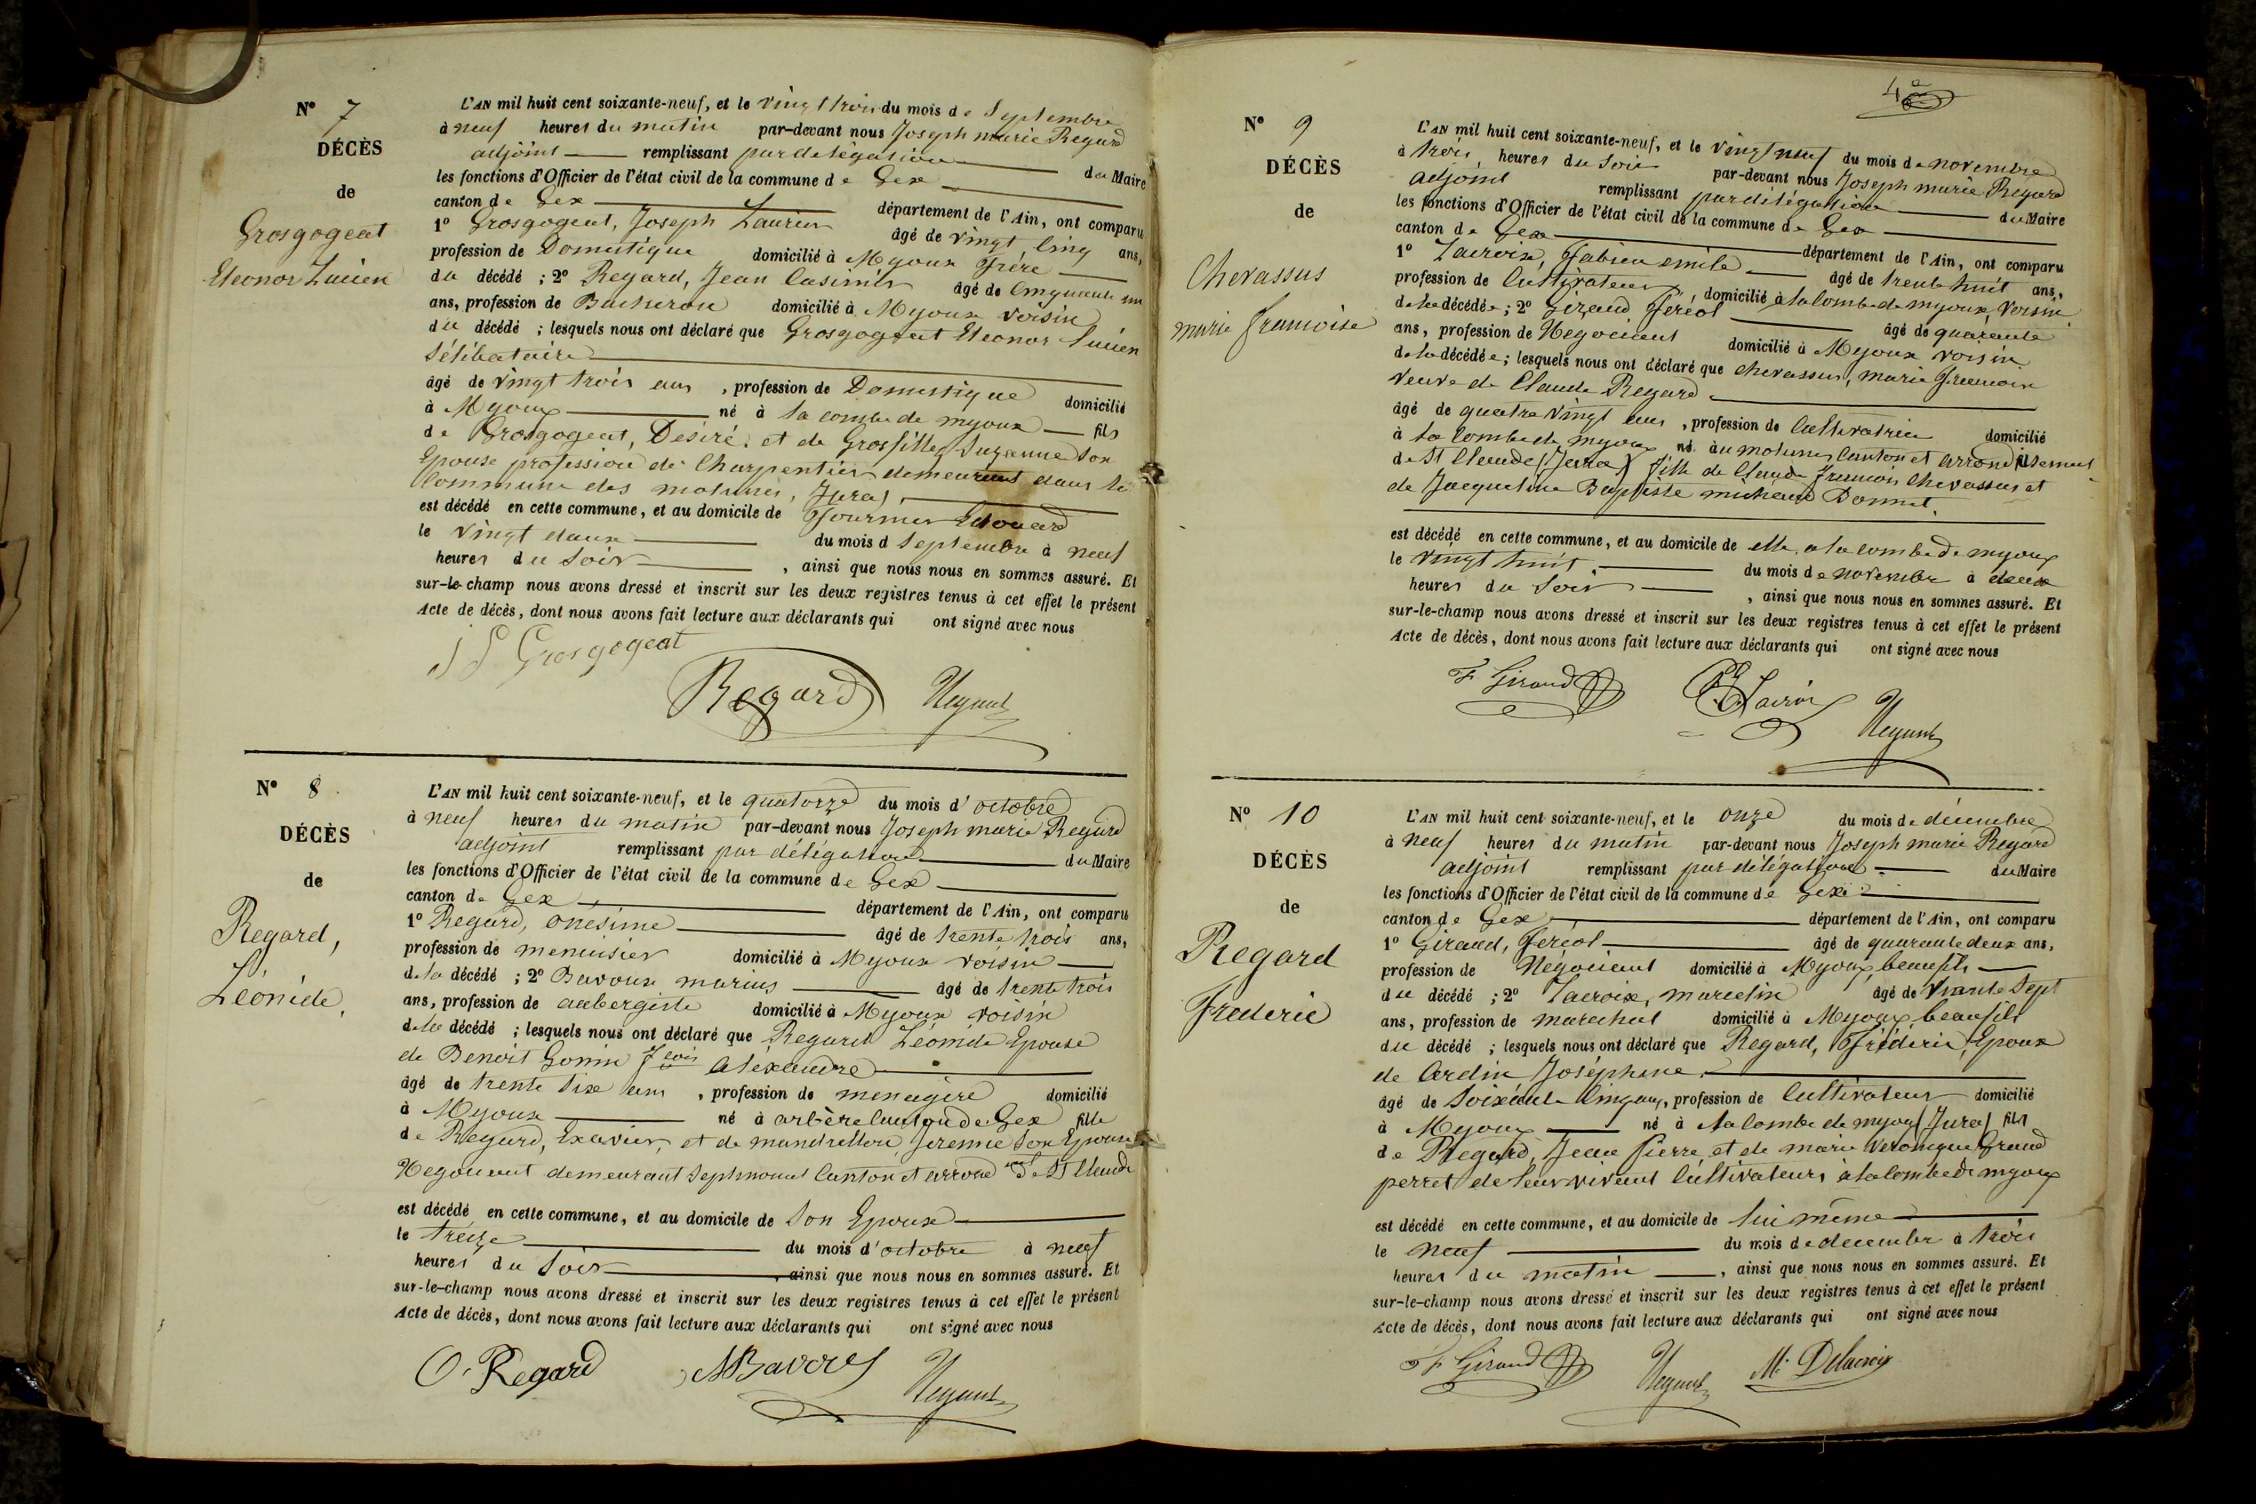 N° 7
DÉCÈS
de
Grosgogeat
Eleonor Lucien
L'AN mil huit cent soixante-neuf, et le vingt trois du mois de Septembre
à neuf heures du matin par-devant nous Joseph marie Regard
adjoint remplissant par délégation du Maire
les fonctions d'Officier de l'état civil de la commune de Gex
canton de Gex département de l'Ain, ont comparu
1° Grosgogeat, Joseph Laurien âgé de vingt cinq ans,
profession de Domestique domicilié à Myoux frère
du décédé ; 2° Regard, Jean Casimir âgé de Cinquante un
ans, profession de Bucheron domicilié à Myoux voisin
du décédé ; lesquels nous ont déclaré que Grosgogeat Eleonor Lucien
Sélibataire
âgé de vingt trois ans , profession de Domestique domicilié
à Myoux né à la combe de myoux fils
de Grosgogeat, Désiré, et de Grosfilley Suzanne Son
Epouse profession de Charpentier demeurant dans la
Commune des molunes, Jura)
est décédé en cette commune, et au domicile de Fournier Edouard
le vingt deux du mois d Septembre à neuf
heures du Soir , ainsi que nous nous en sommes assuré. Et
sur-le-champ nous avons dressé et inscrit sur les deux registres tenus à cet effet le présent
Acte de décès, dont nous avons fait lecture aux déclarants qui ont signé avec nous
Grosgogeat
Regard
N° 8
DÉCÈS
de
Regard,
Léonide,
L'AN mil huit cent soixante-neuf, et le quatorze du mois d'octobre
à neuf heures du matin par-devant nous Joseph marie Regard
adjoint remplissant par délégation du Maire
les fonctions d'Officier de l'état civil de la commune de Gex
canton de Gex département de l'Ain, ont comparu
1° Regard, onésime âgé de trente trois ans,
profession de menuisier domicilié à Myoux voisin
de la décédé ; 2° Bavoux marius âgé de trente trois
ans, profession de aubergiste domicilié à Myoux voisin
de la décédé ; lesquels nous ont déclaré que Regard Léonide Epouse
de Benoit Gonin fcois Aléxandre
âgé de trente Six ans , profession de menagère domicilié
à Myoux né à arbère Canton de Gex fille
de Regard, Exavier, et de mandrillon, Jeremie Son Epouse
Negociant demeurant Septmoncel Canton et arrond mt de St Claude
est décédé en cette commune, et au domicile de Son Epoux
le treize du mois d'octobre à neuf
heures du Soir , ainsi que nous nous en sommes assuré. Et
sur-le-champ nous avons dressé et inscrit sur les deux registres tenus à cet effet le présent
Acte de décès, dont nous avons fait lecture aux déclarants qui ont signé avec nous
O. Regard
4e
N° 9
DÉCÈS
de
Chevassus
marie francoise
L'AN mil huit cent soixante-neuf, et le vingt neuf du mois de novembre
à trois, heures du Soir par-devant nous Joseph marie Regard
adjoint remplissant par délégation du Maire
les fonctions d'Officier de l'état civil de la commune de Gex
canton de Gex département de l'Ain, ont comparu
1° Lacroix, Fabien emile âgé de trente huit ans,
profession de Cultivateur, domicilié à la combe de myoux, voisin
de la décédée ; 2° Giraud, Féréol âgé de quarante
ans, profession de Negociant domicilié à Myoux voisin
de la décédée ; lesquels nous ont déclaré que chevassus, marie francoise
veuve de Claude Regard
âgé de quatre vingt ans , profession de Cultivatrice domicilié
à la combe de myoux né au molunes Canton et arrondissement
de St Claude (Jura) fille de Claude francois Chevassus et
de Jacqueline Baptiste michaud Donnet.
est décédé en cette commune, et au domicile de elle a la combe de myoux
le vingt huit du mois de novembre à deux
heures du Soir , ainsi que nous nous en sommes assuré. Et
sur-le-champ nous avons dressé et inscrit sur les deux registres tenus à cet effet le présent
Acte de décès, dont nous avons fait lecture aux déclarants qui ont signé avec nous
F Giraud
N° 10
DÉCÈS
de
Regard
Frederic
L'AN mil huit cent soixante-neuf, et le onze du mois de décembre
à neuf heures du matin par-devant nous Joseph marie Regard
adjoint remplissant par délégation du Maire
les fonctions d'Officier de l'état civil de la commune de Gex
canton de Gex département de l'Ain, ont comparu
1° Giraud, Féréol âgé de quarante deux ans,
profession de Négociant domicilié à Myoux, beaufils
du décédé ; 2° Lacroix, marcelin âgé de trante Sept
ans, profession de marechal domicilié à Myoux beaufils
du décédé ; lesquels nous ont déclaré que Regard, Fréderic, Epoux
de Cordin Joséphine
âgé de Soixante Cinq ans, profession de Cultivateur domicilié
à Myoux né à la combe de myoux (Jura) fils
de Regard, Jean Pierre et de marie Veronique Grand
perret de leur vivant Cultivateurs à la combe de myoux
est décédé en cette commune, et au domicile de lui même
le neuf du mois de decembre à trois
heures du matin , ainsi que nous nous en sommes assuré. Et
sur-le-champ nous avons dressé et inscrit sur les deux registres tenus à cet effet le présent
Acte de décès, dont nous avons fait lecture aux déclarants qui ont signé avec nous
F Giraud
M. Delacroix